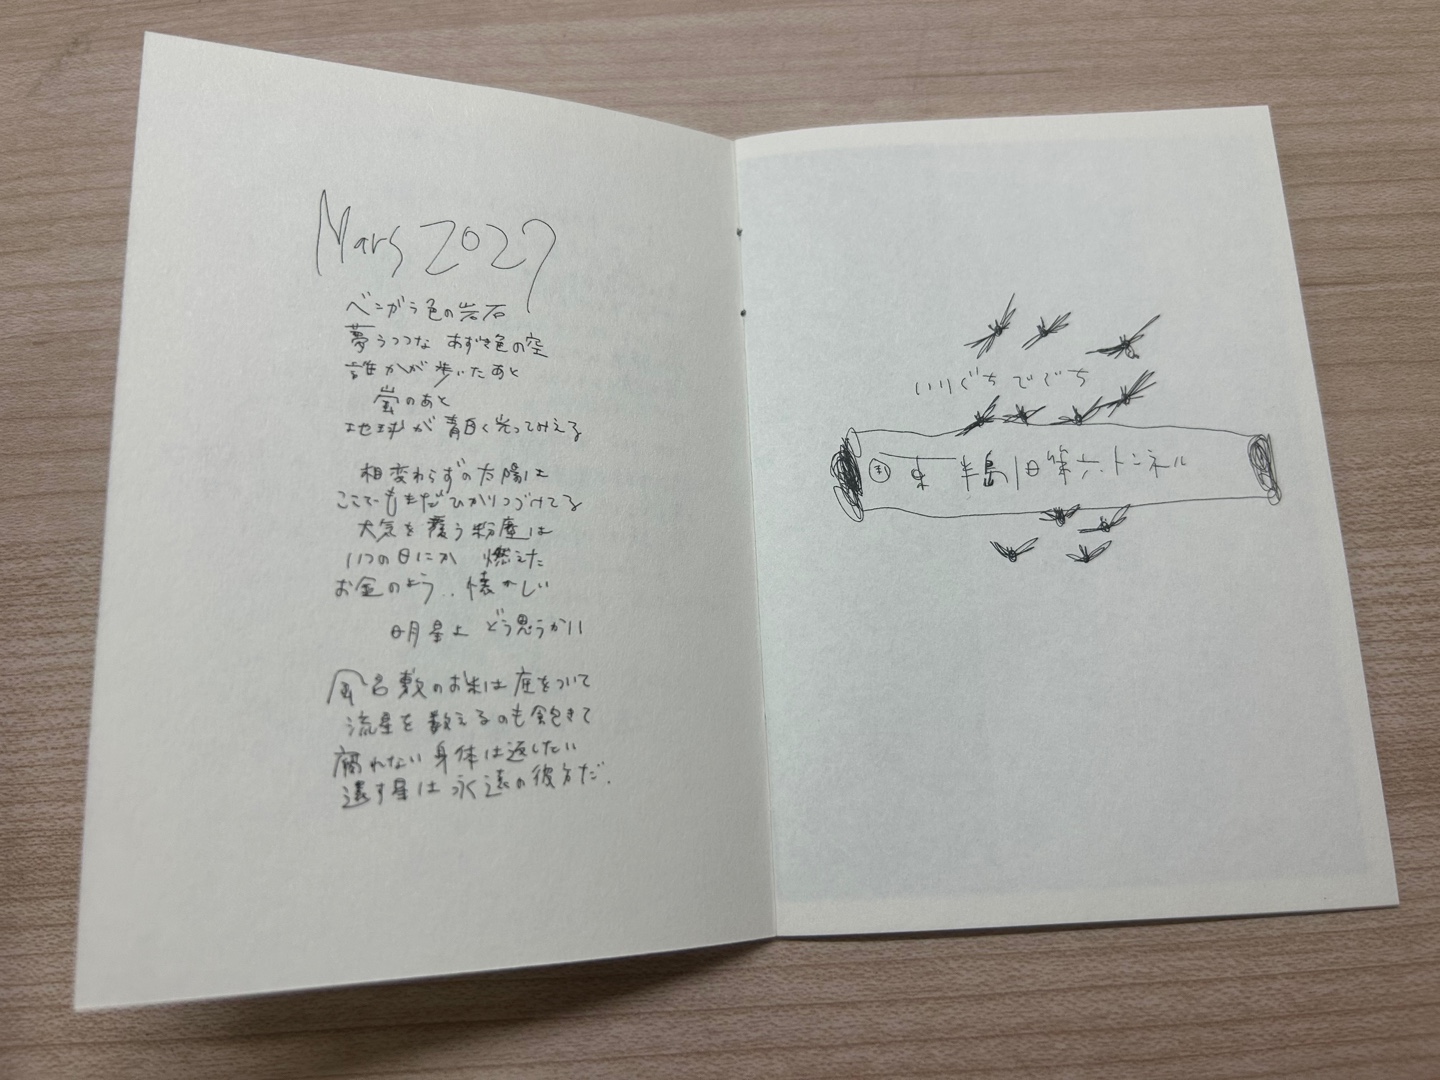 Mars 2027
ベンガラ色の岩石
夢うつつな あずき色の空
誰かが歩いたあと
蛍のあと
地球が青白く光ってみえる
相変わらずの太陽は
ここでもまだひかりつづけてる
大気を覆う粉塵は
いつの日にか 燃えた
お金のよう‥懐かしい
明星よ どう思うかい
屋敷のお米は底をついて
流星を数えるのも飽きて
腐れない身体は返したい
還す星は永遠の彼方だ.
いりぐちでぐち
半島旧第六トンネル